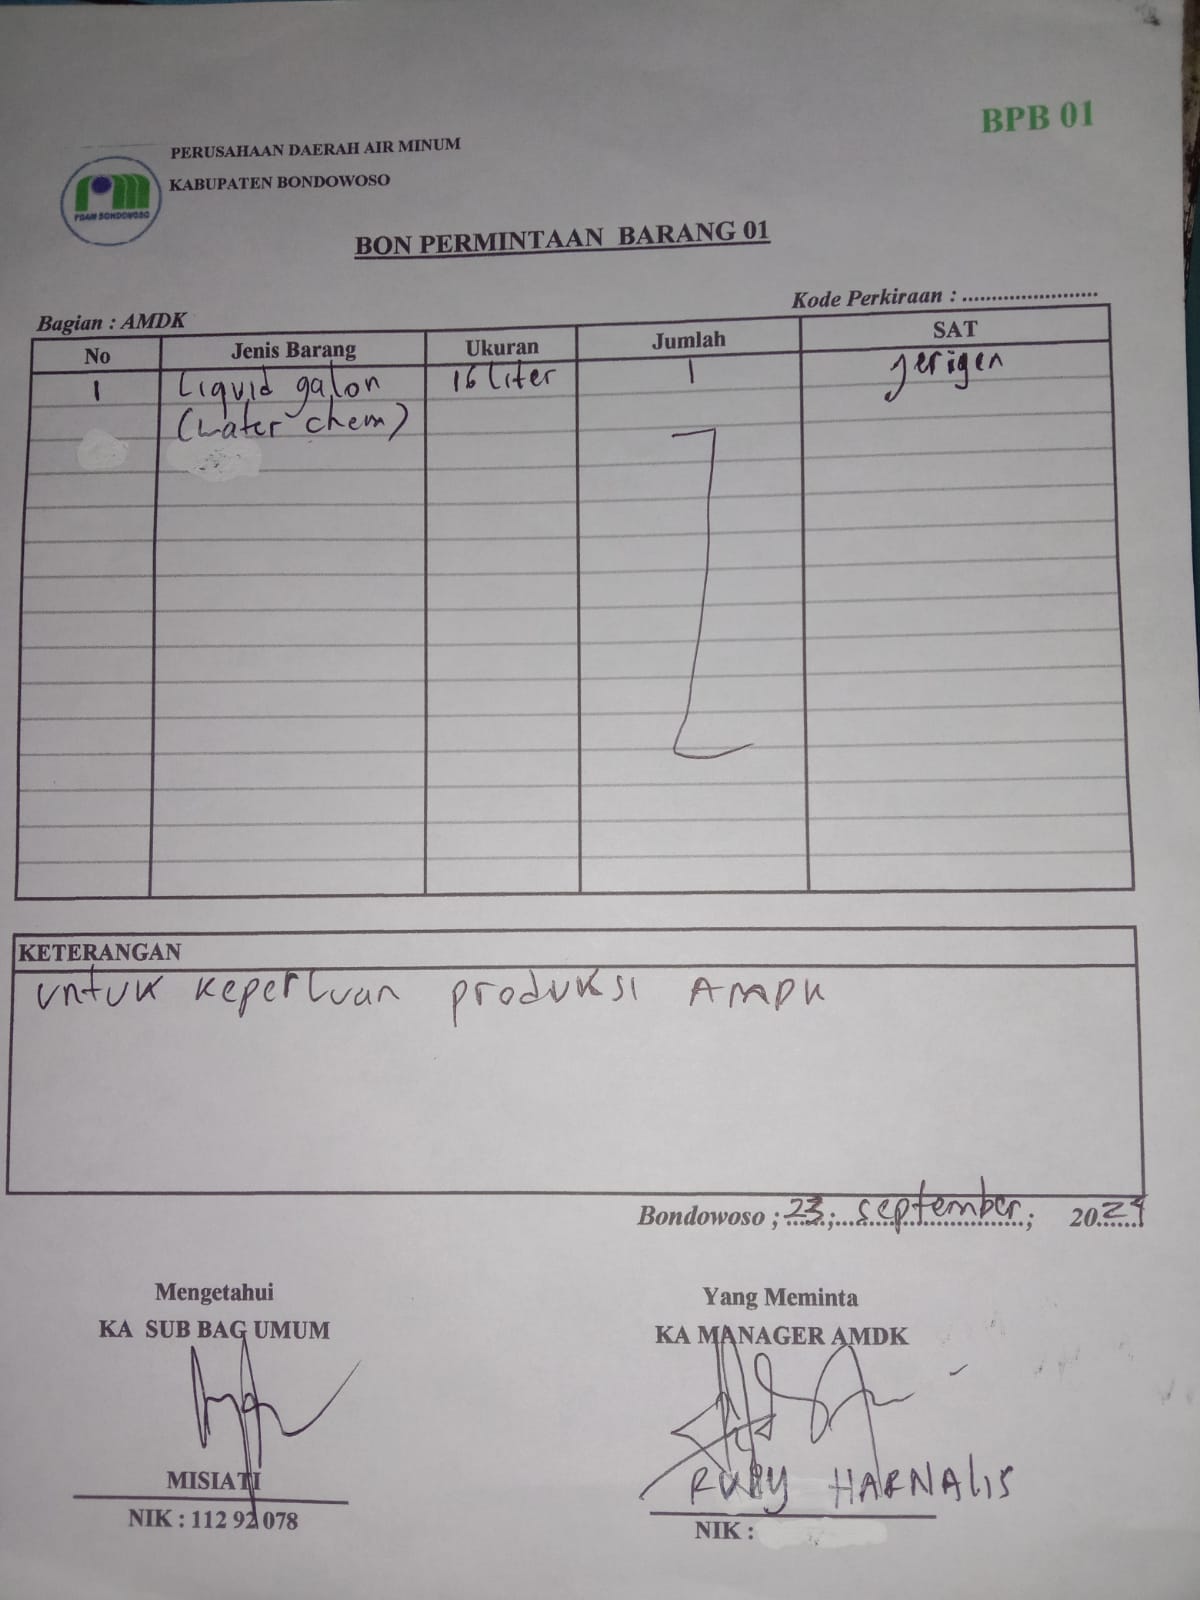 BPB 01
PERUSAHAAN DAERAH AIR MINUM
KABUPATEN BONDOWOSO
PDAM BONDOWOSO
BON PERMINTAAN BARANG 01
Kode Perkiraan : ........................
Bagian : AMDK
No Jenis Barang Ukuran Jumlah SAT
1 Liquid galon 16 Liter 1 Jerigen
(water chem)
KETERANGAN
untuk keperluan produksi AMDK
Bondowoso ; 23 ; september ; 2024
Mengetahui
KA SUB BAG UMUM
MISIATI
NIK : 112 92 078
Yang Meminta
KA MANAGER AMDK
RUDY HARNALIS
NIK :